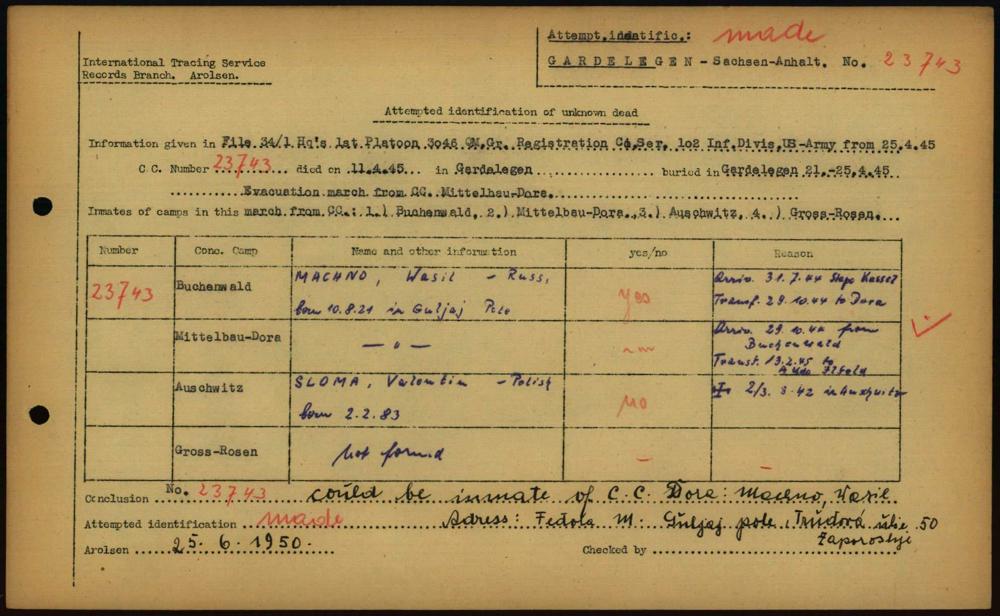 Attempt.identific.: made
International Tracing Service
Records Branch. Arolsen.
GARDELEGEN - Sachsen-Anhalt. No. 23743
Attempted identification of unknown dead
Information given in File 34/1 Hq's 1st Platoon 3046 QM.Gr. Registration Co.Ser. 102 Inf.Divis.US-Army from 25.4.45
C.C. Number 23743 died on 11.4.45 in Gardelegen buried in Gardelegen 21.-25.4.45
Evacuation march from CC. Mittelbau-Dora.
Inmates of camps in this march from CC.: 1.) Buchenwald, 2.) Mittelbau-Dora, 3.) Auschwitz, 4.) Gross-Rosen.
Number Conc. Camp Name and other information yes/no Reason
23743 Buchenwald MACHNO, Wasil - Russ, yes Arriv. 31.7.44 Stapo Kassel
born 10.8.21 in Guljaj Pole Transf. 29.10.44 to Dora
Mittelbau-Dora — " — Arriv. 29.10.44 from
Buchenwald
Transf. 13.2.45 to
Ilfeld
Auschwitz SLOMA, Valentin - Polish no 2/3. 8.42 in Auschwitz
born 2.2.83
Gross-Rosen not found - -
Conclusion No. 23743 could be inmate of C.C. Dora: Machno, Wasil
Attempted identification made Adress: Fedola M. Guljaj pole, Trudová ulic 50
Zaporoshje
Arolsen 25.6.1950. Checked by